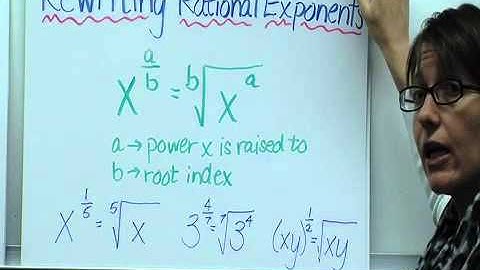 Rewriting Rational Exponents
x^(a/b) = ᵇ√(x^a)
a → power x is raised to
b → root index
x^(1/5) = ⁵√x 3^(4/7) = ⁷√(3^4) (xy)^(1/2) = √(xy)